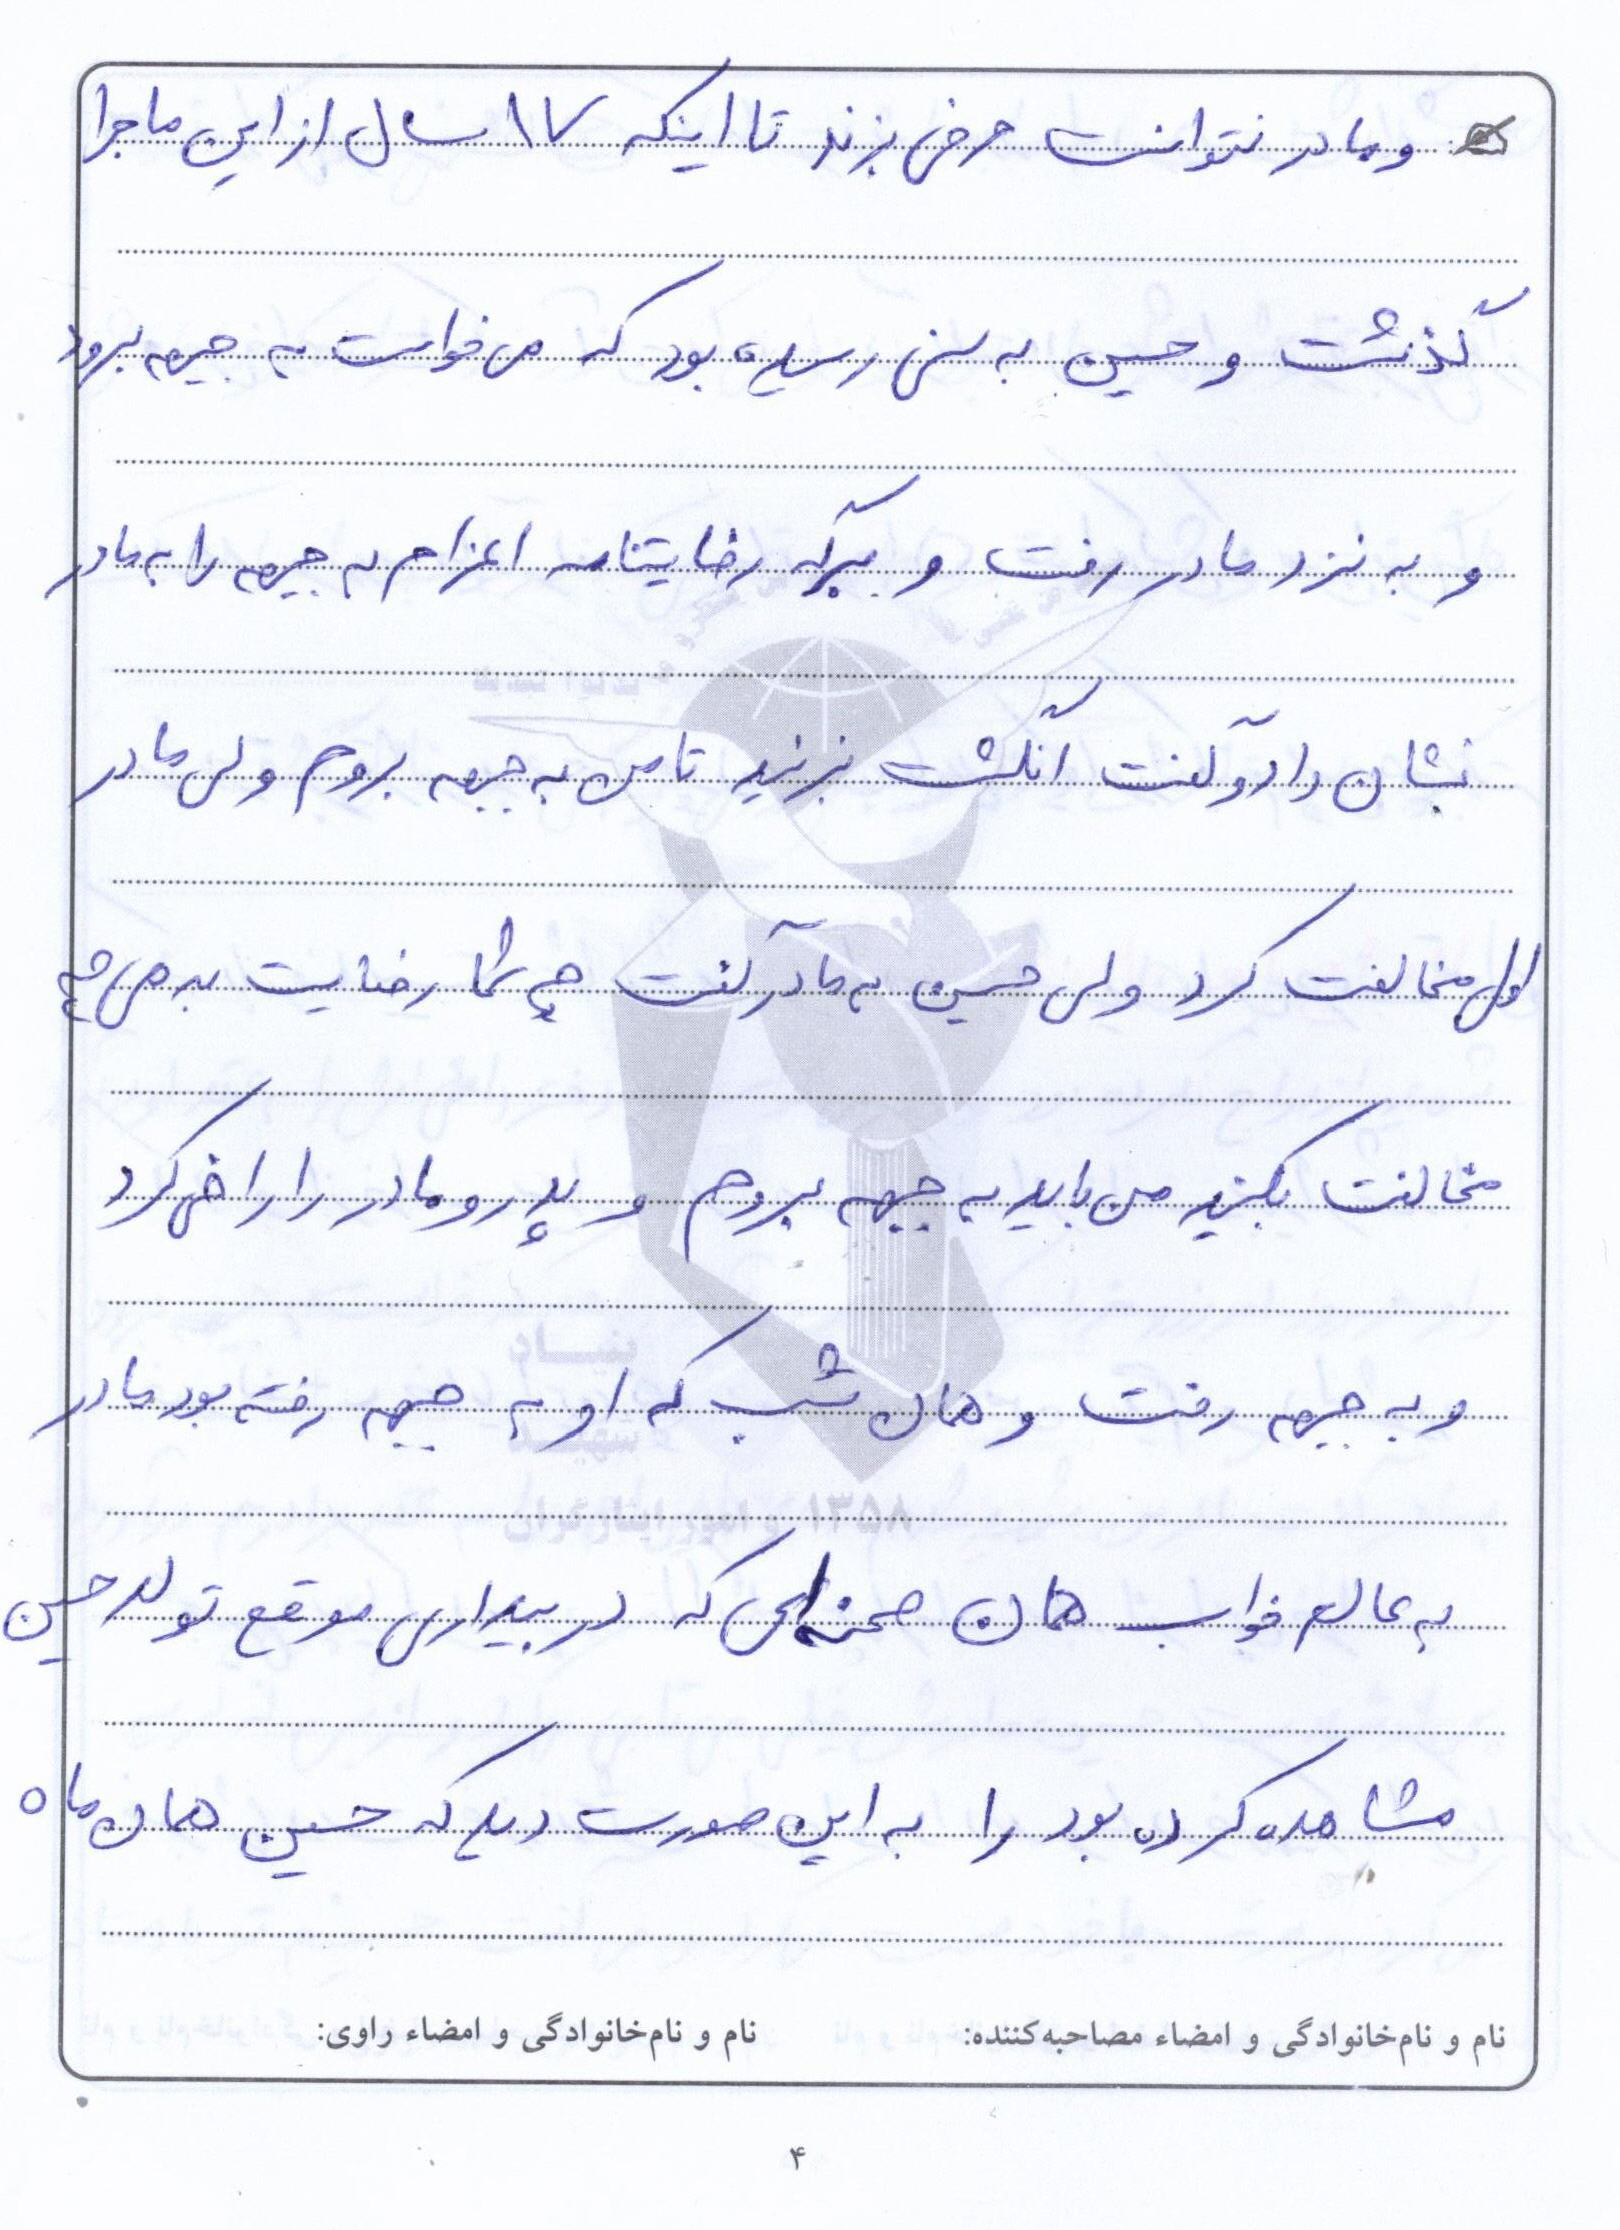 و مادر نتوانست حرفی بزند تا اینکه ۱۷ سال از این ماجرا
گذشت و حسین به سنی رسیده بود که می خواست به جبهه برود
و به نزد مادر رفت و برگه رضایتنامه اعزام به جبهه را به مادر
نشان داد و گفت انگشت بزنید تا من به جبهه بروم ولی مادر
اول مخالفت کرد ولی حسین به مادر گفت چه شما رضایت بدهی چه
مخالفت بکنید من باید به جبهه بروم و پدر و مادر را راضی کرد
و به جبهه رفت و همان شب که او به جبهه رفته بود مادر
به عالم خواب همان صحنه ای که در بیداری موقع تولد حسین
مشاهده کرده بود را به این صورت دید که حسین همان ماه
نام و نام‌خانوادگی و امضاء مصاحبه‌کننده: نام و نام‌خانوادگی و امضاء راوی:
۴
بنیاد
شهید
و امور ایثارگران ۱۳۵۸